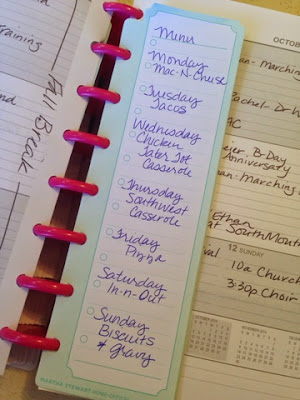 raining
Fall Break
Menu
Monday
Mac-N-Cheese
Tuesday
Tacos
Wednesday
Chicken
Tater Tot
Casserole
Thursday
Southwest
Casserole
Friday
Pizza
Saturday
In-n-Out
Sunday
Biscuits
& gravy
MARTHA STEWART HOME OFFICE
OCTOBER
an-Marching
Rachel-Dr
AC
B-Day
Anniversary
an-Marching
Ethan
at SouthMount
12 SUNDAY
10a Church
3:30p Choir